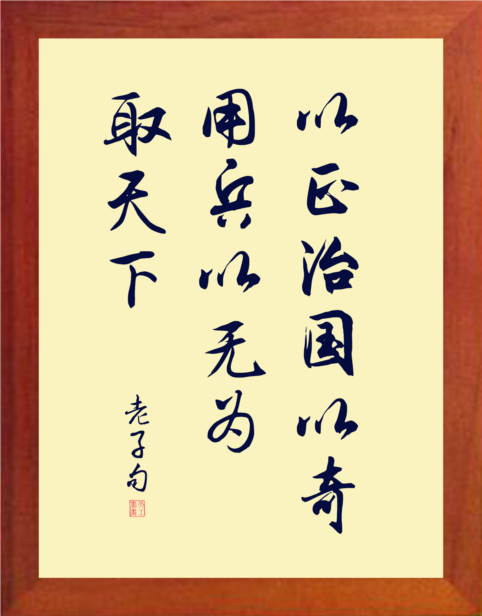 以正治国以奇
用兵以无为
取天下
老子句